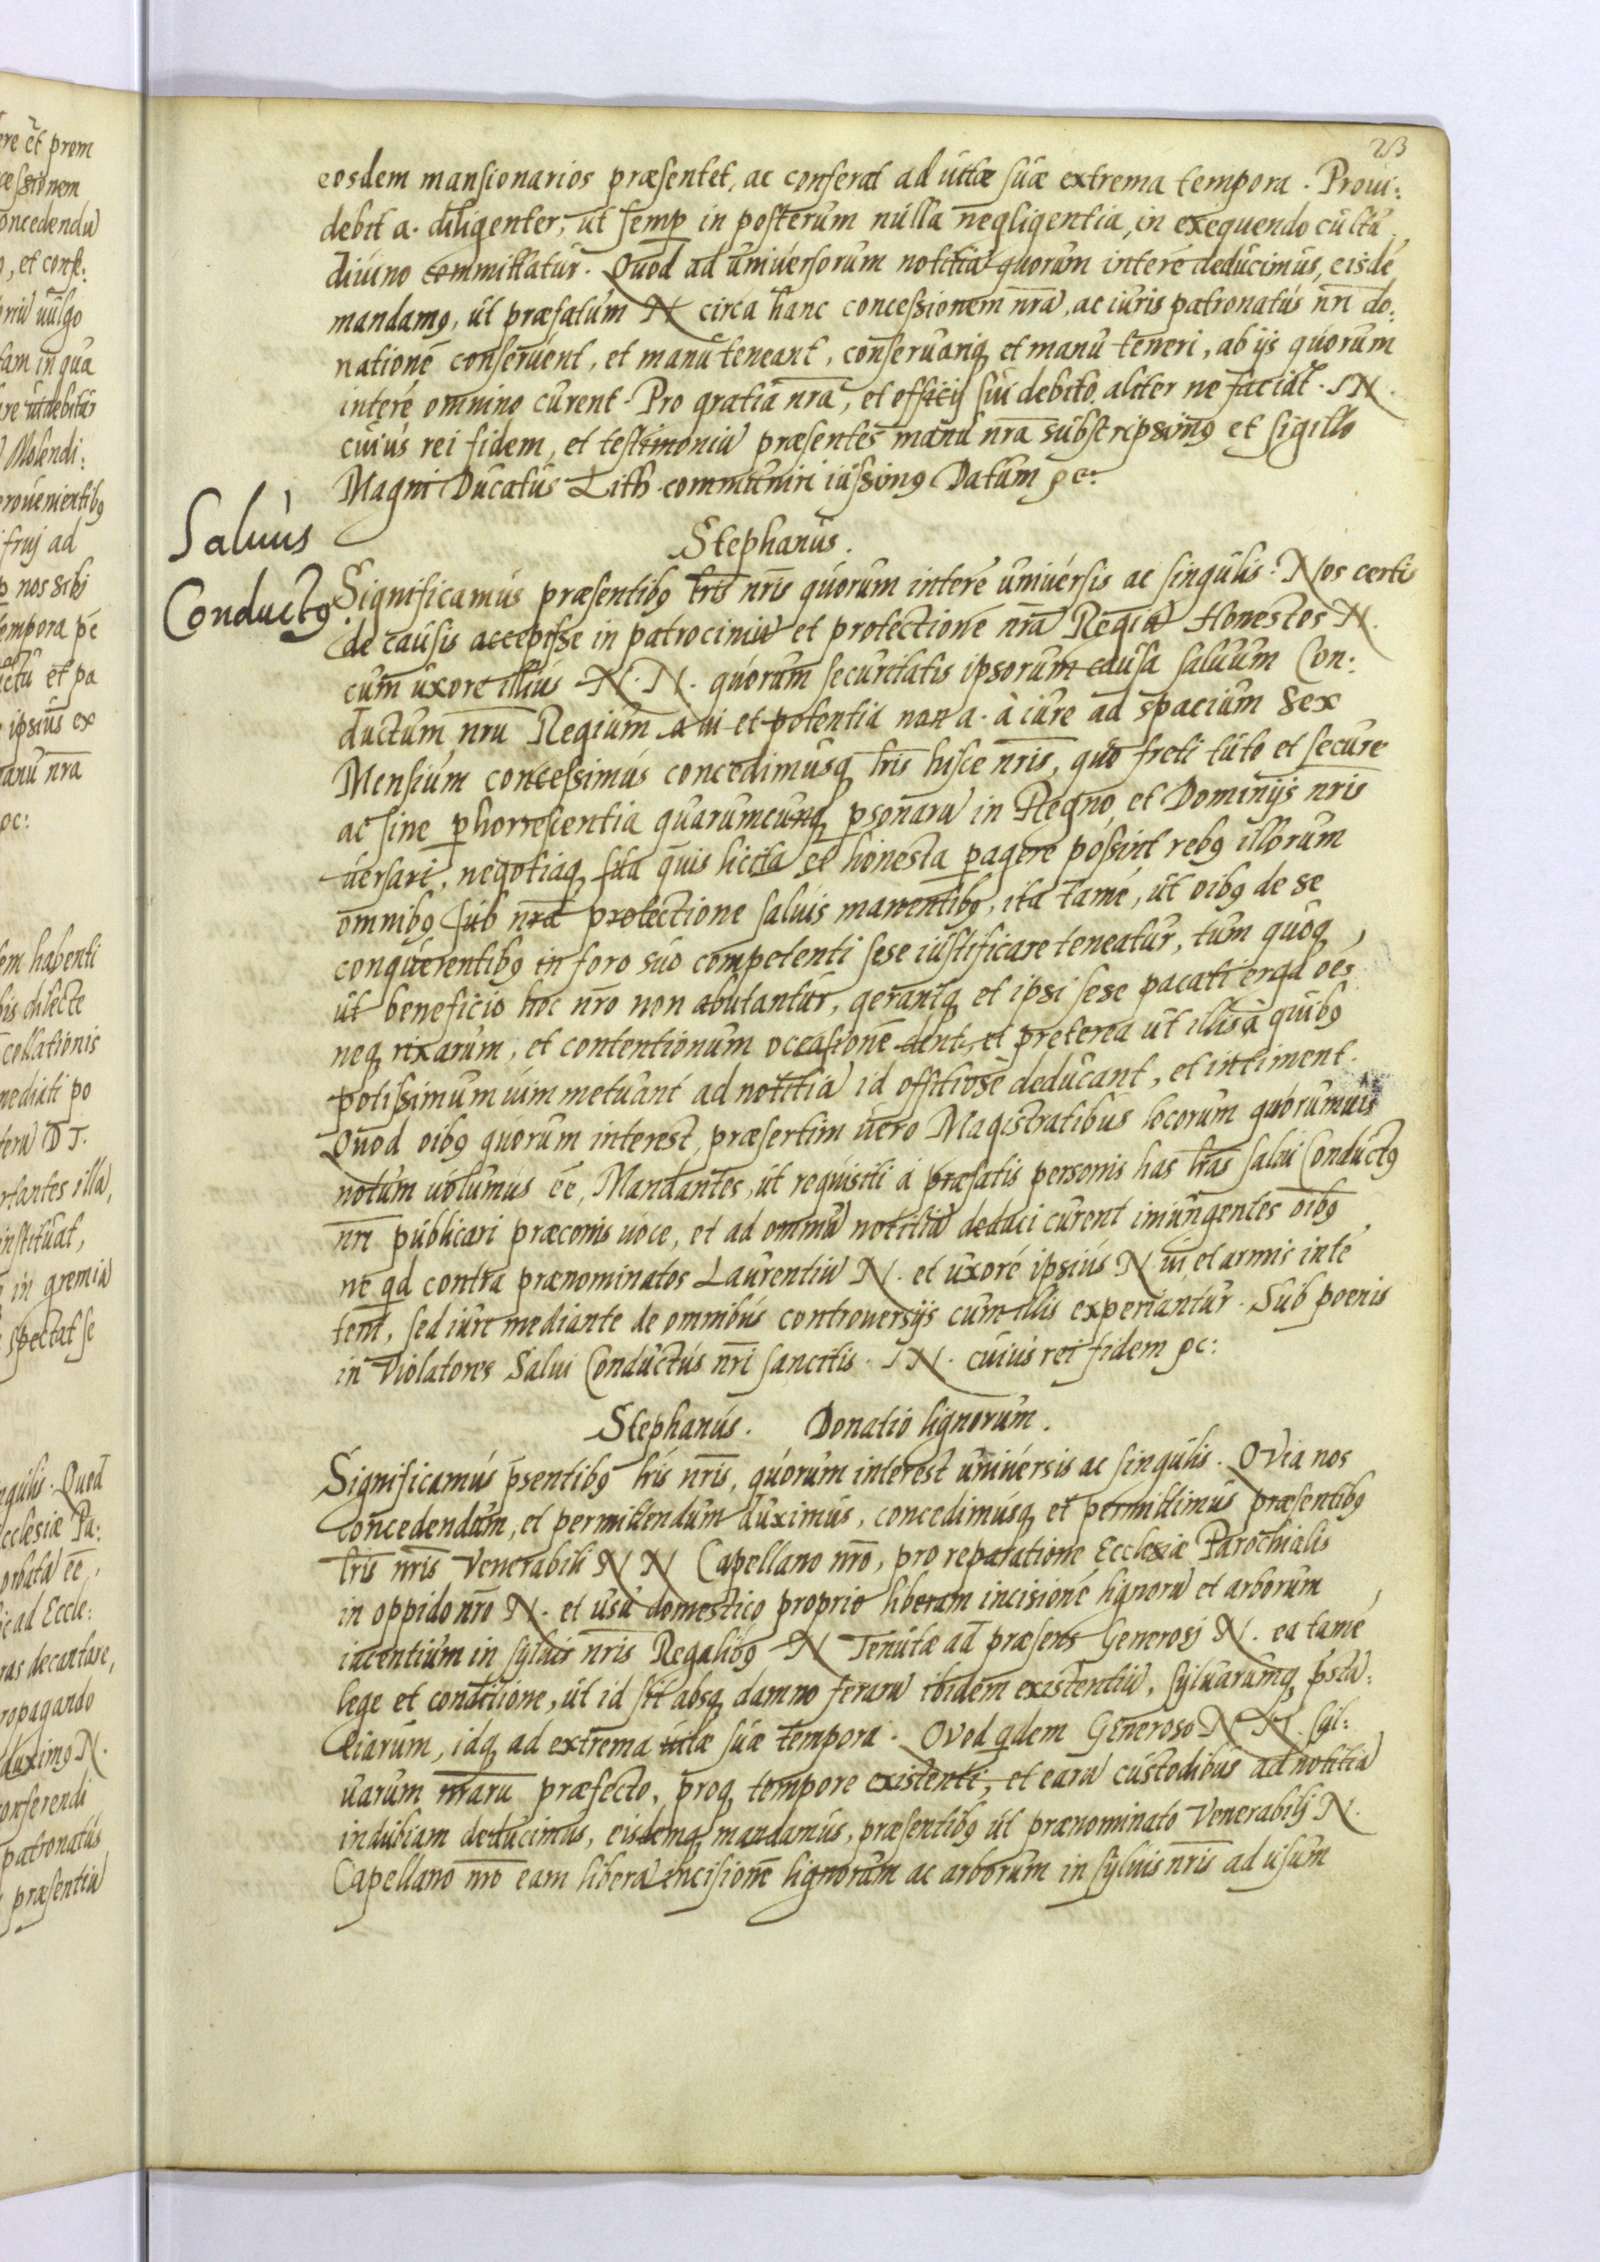 23
eosdem mansionarios præsentet, ac conferat ad uitæ suæ extrema tempora. Proui:
debit a. diligenter, ut semp in posterum nulla negligentia, in exequendo cultu
diuino committatur. Quod ad uniuersorum notitiā quorum interē deducimus, eisdē
mandamꝰ, ut præfatum N circa hanc concessionem nrā, ac iuris patronatus nri do:
nationē conseruent, et manu teneant, conseruariqꝫ et manu teneri, ab ijs quorum
interē omnino curent. Pro gratia nrā, et officij sui debito aliter ne faciāt. IN.
cuius rei fidem, et testimoniū præsentes manu nra subscripsimꝰ et sigillo
Magni Ducatus Lith. communiri iussimꝰ Datum ꝛc:
Saluus
Conductꝰ.
Stephanus.
Significamus præsentibꝰ lris nris quorum interē uniuersis ac singulis. Nos certis
de causis accepisse in patrociniū et protectionē nrā Regiā Honestos N.
cum uxore illius N. N. quorum securitatis ipsorum causa saluum Con:
ductum nrū Regium a ui et potentia non a. à iure ad spacium sex
Mensium concessimus concedimusqꝫ lris hisce nris, quo freti tuto et secure
ac sine ꝑhorrescentia quarumcunqꝫ ꝑsonarū in Regno, et Dominijs nris
uersari, negotiaqꝫ sua quis licita et honesta ꝑagere possint rebꝰ illorum
omnibꝰ sub nra protectione saluis manentibꝰ, ita tamē, ut oibꝰ de se
conquerentibꝰ in foro suo competenti sese iustificare teneatur, tum quoqꝫ
ut beneficio hoc nro non abutantur, gerantqꝫ et ipsi sese pacati erga oēs
neqꝫ rixarum, et contentionum occasionē dent, et preterea ut illis à quibꝰ
potissimum uim metuant ad notitiā id offitiose deducant, et intiment.
Quod oibꝰ quorum interest, præsertim uero Magistratibus locorum quorumuis
notum uolumus ēe, Mandantes, ut requisiti a præfatis personis has lras salui Conductꝰ
nri publicari præconis uoce, et ad omniū notitiā deduci curent iniungentes oibꝰ
ne qd contra prænominatos Laurentiū N. et uxorē ipsius N. ui et armis intē
tent, sed iure mediante de omnibus controuersijs cum illis experiantur. Sub poenis
in Violatores Salui Conductus nri sancitis. IN. cuius rei fidem ꝛc:
Stephanus. Donatio lignorum.
Significamus p̄sentibꝰ lris nris, quorum interest uniuersis ac singulis. Quia nos
concedendum, et permittendum duximus, concedimusqꝫ et permittimus præsentibꝰ
lris nris Venerabili N N Capellano nro, pro reparatione Ecclesiæ Parochialis
in oppido nro N. et usu domestico proprio liberam incisionē lignorū et arborum
iacentium in syluis nris Regalibꝰ N Tenutæ ad præsens Generosi N. ea tamē
lege et conditione, ut id sit absqꝫ damno ferarū ibidem existentiū, syluarumqꝫ p̄sta:
tiarum, idqꝫ ad extrema uitæ suæ tempora. Quod qdem Generoso N N. syl:
uarum nrarū præfecto, proqꝫ tempore existenti, et earū custodibus ad notitiā
indubiam deducimus, eisdemqꝫ mandamus, præsentibꝰ ut prænominato Venerabilj N.
Capellano nro eam liberā incisionē lignorum ac arborum in syluis nris ad usum